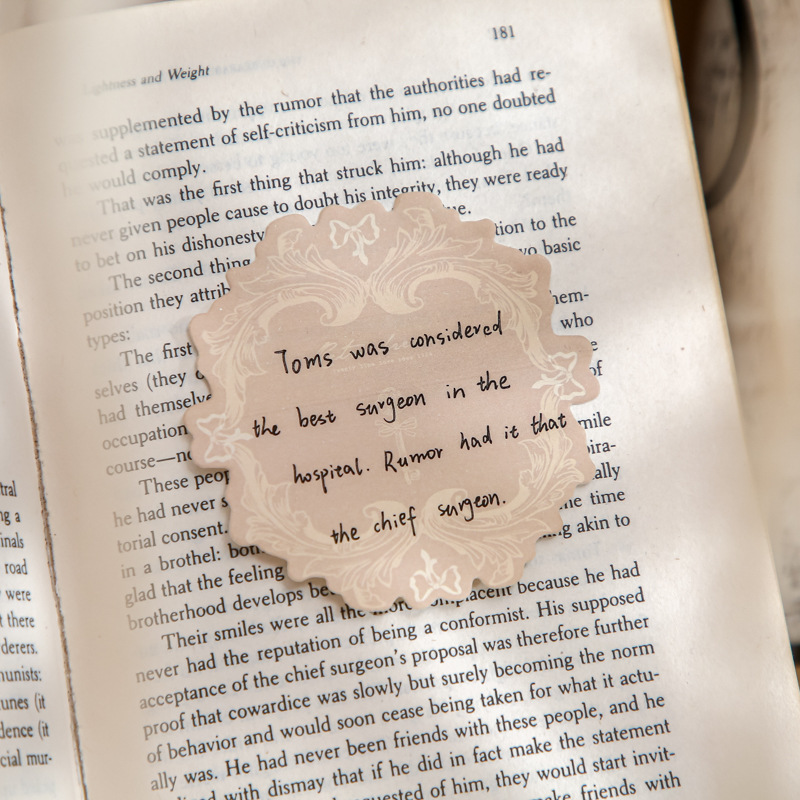 181
Lightness and Weight
was supplemented by the rumor that the authorities had re-
quested a statement of self-criticism from him, no one doubted
he would comply.
That was the first thing that struck him: although he had
never given people cause to doubt his integrity, they were ready
to bet on his dishonesty
The second thing
tion to the
position they
basic
types:
The first
hem-
selves (they
who
had
of
occupation
course—
mile
These
he had never
ally
torial consent.
time
in a brothel:
akin to
glad that the feeling
brotherhood develops
Their smiles were all the more complacent because he had
never had the reputation of being a conformist. His supposed
acceptance of the chief surgeon's proposal was therefore further
proof that cowardice was slowly but surely becoming the norm
of behavior and would soon cease being taken for what it actu-
ally was. He had never been friends with these people, and he
with dismay that if he did in fact make the statement
of him, they would start invit-
friends with
Toms was considered
the best surgeon in the
hospital. Rumor had it that
the chief surgeon.
tral
ng a
inals
road
were
t there
derers.
nunists:
unes (it
dence (it
cial mur-